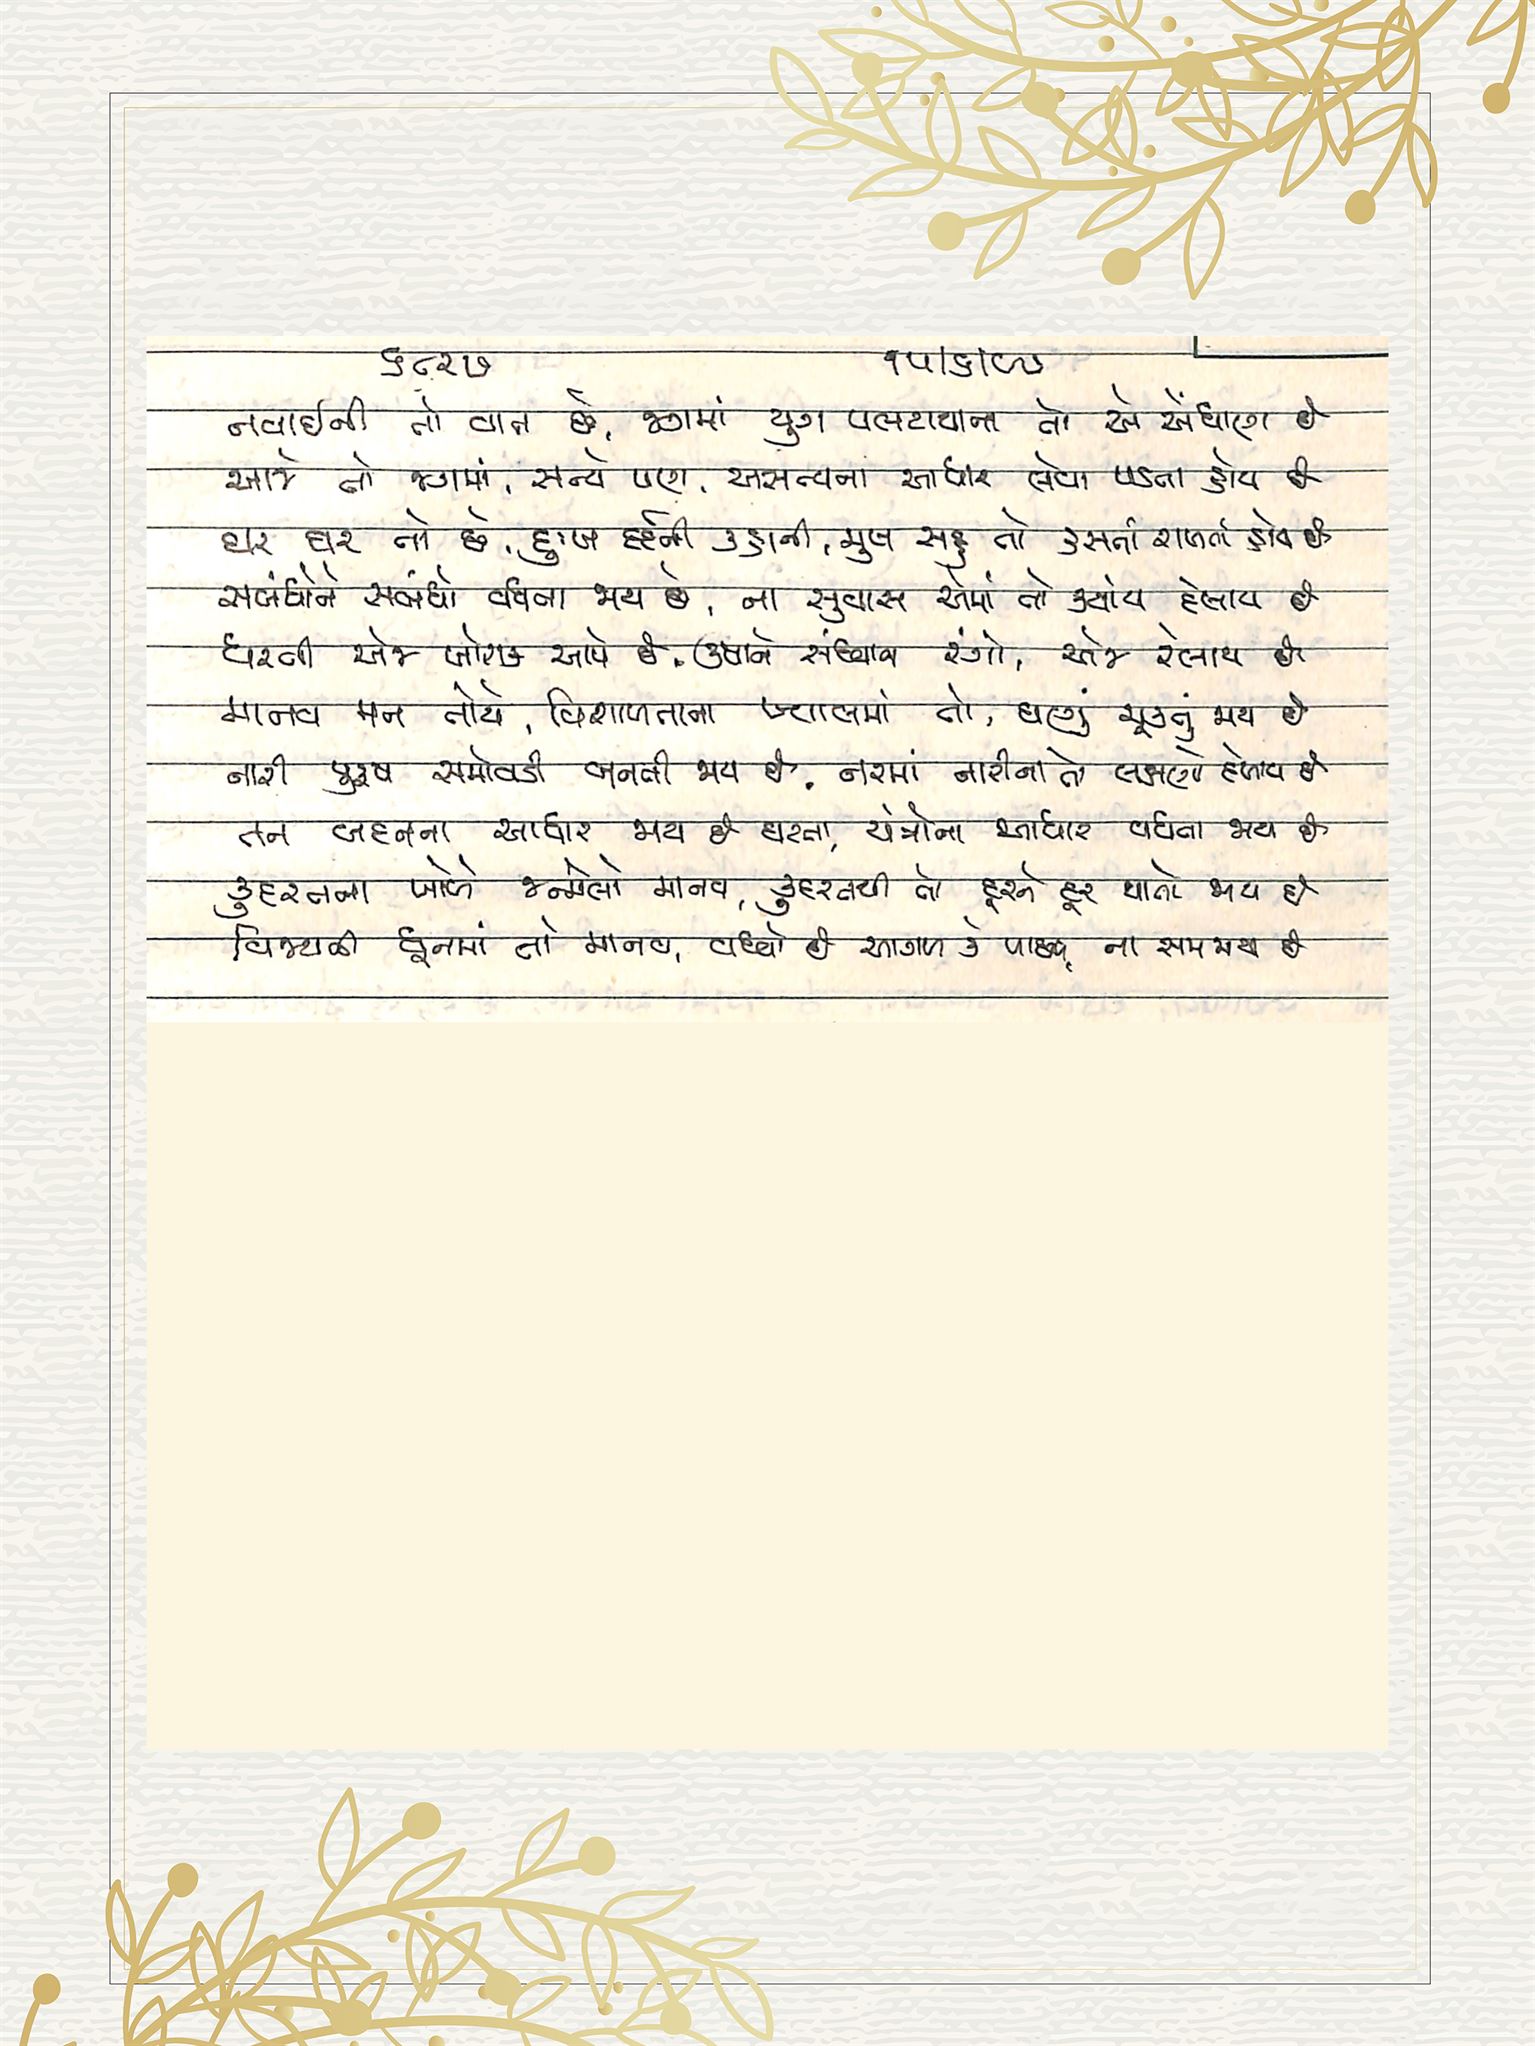 ૬૮૨૭ ૧૫/૬/૯૭
નવાઈની તો વાત છે, જગમાં યુગ પલટાવાના તો એ એંધાણ છે
આજે તો જગમાં, સત્યે પણ, અસત્યના આધાર લેવા પડતા હોય છે
ઘર ઘર નો છે, દુઃખ દર્દની કહાની, મુખ સહુ તો હસતાં રાખતાં હોય છે
સબંધોને સબંધો વધતા જાય છે, ના સુવાસ એમાં તો ક્યાંય દેખાય છે
ધરતી એજ ખોરાક આપે છે, ઉષાને સંધ્યાના રંગો, એજ રેલાય છે
માનવ મન તોયે, વિશાળતાના ખ્યાલમાં તો, ઘણું ચૂકતું જાય છે
નારી પુરુષ સમોવડી બનતી જાય છે, નરમાં નારીના તો લક્ષણો દેખાય છે
તન બદનના આધાર જાય છે ઘટતા, યંત્રોના આધાર વધતા જાય છે
કુદરતના ખોળે જન્મેલો માનવ, કુદરતથી તો દૂરને દૂર થાતો જાય છે
વિજયની ધૂનમાં તો માનવ, વધ્યો છે આગળ કે પાછળ, ના સમજાય છે